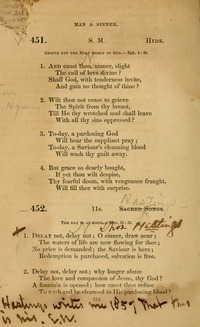 MAN A SINNER.
451. S. M. HYDE.
GRIEVE NOT THE HOLY SPIRIT OF GOD.—Eph. 4: 30.
1. AND canst thou, sinner, slight
The call of love divine?
Shall God, with tenderness invite,
And gain no thought of thine?
2. Wilt thou not cease to grieve
The Spirit from thy breast,
Till He thy wretched soul shall leave
With all thy sins oppressed?
3. To-day, a pardoning God
Will hear the suppliant pray;
To-day, a Saviour's cleansing blood
Will wash thy guilt away.
4. But grace so dearly bought,
If yet thou wilt despise,
Thy fearful doom, with vengeance fraught,
Will fill thee with surprise.
Hastings
452. 11s. SACRED SONGS.
Thos Hastings
1. DELAY not, delay not; O sinner, draw near;
The waters of life are now flowing for thee;
No price is demanded; the Saviour is here;
Redemption is purchased, salvation is free.
2. Delay not, delay not; why longer abuse
The love and compassion of Jesus, thy God?
A fountain is opened; how canst thou refuse
To wash and be cleansed in His pardoning blood?
Hastings writes me 1859 that this
is his.